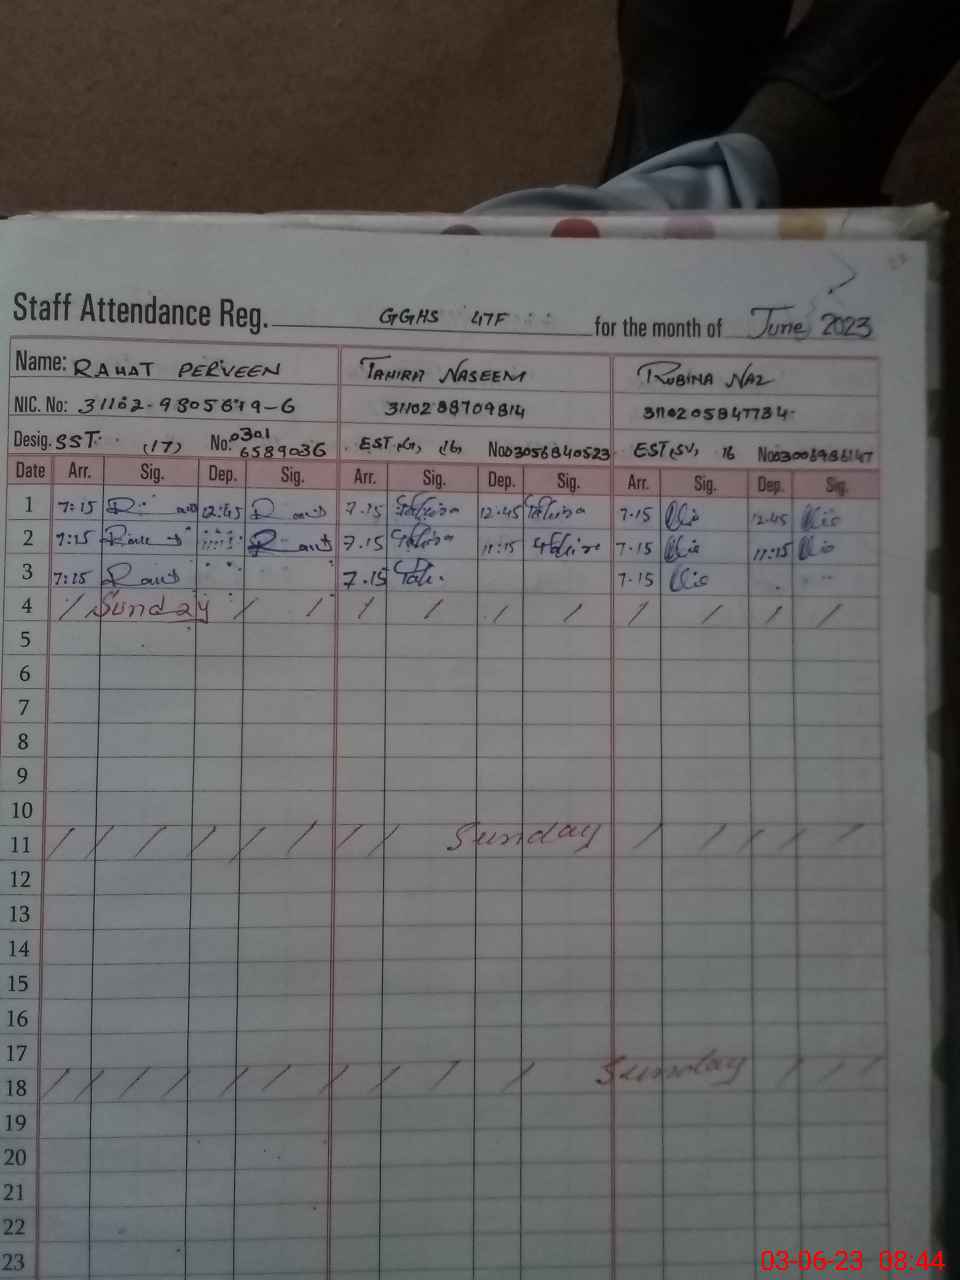 Staff Attendance Reg. GGHS 47F for the month of June 2023
Name: RAHAT PERVEEN TAHIRA NASEEM RUBINA NAZ
NIC. No: 31102-9805679-6 3110288709814 3110205847784-
Desig. SST (17) No. 0301 6589036 EST (G), 16, No 03056840523 EST (SV), 16 No 03006986147
Date Arr. Sig. Dep. Sig. Arr. Sig. Dep. Sig. Arr. Sig. Dep. Sig.
1 7:15 12:45 7.15 Tahira 12.45 Tahira 7.15 12.45
2 7:15 11:15 7.15 Tahira 11:15 Tahira 7.15 11:15
3 7:15 7.15 7.15
4 / Sunday / / / / / / / / / /
5
6
7
8
9
10
11 / / / / / / / / Sunday / / / / /
12
13
14
15
16
17
18 / / / / / / / / / / / Sunday / / /
19
20
21
22
23
03-06-23 08:44